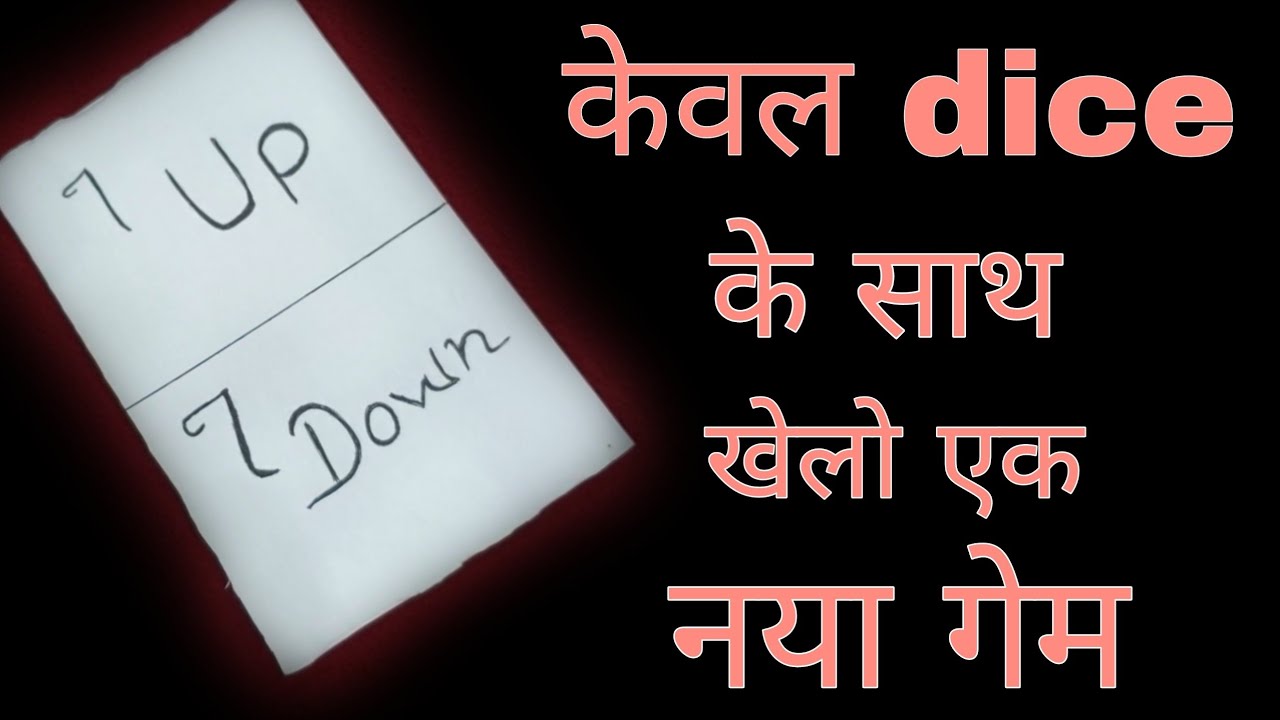 7 UP
7 Down
केवल dice
के साथ
खेलो एक
नया गेम